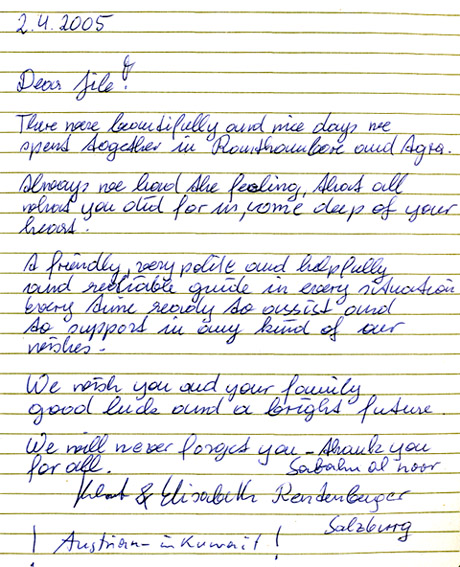 2.4.2005
Dear Jile!
There were beautifully and nice days we
spent together in Ranthambore and Agra.
Always we had the feeling, that all
what you did for us, come deep of your
heart.
A friendly, very polite and helpfully
and reliable guide in every situation
every time ready to assist and
to support in any kind of our
wishes-
We wish you and your family
good luck and a bright future.
We will never forget you - thank you
for all. Sabahu al noor
& Elisabeth Rendenberger
Salzburg
! Austrian - in Kuwait !